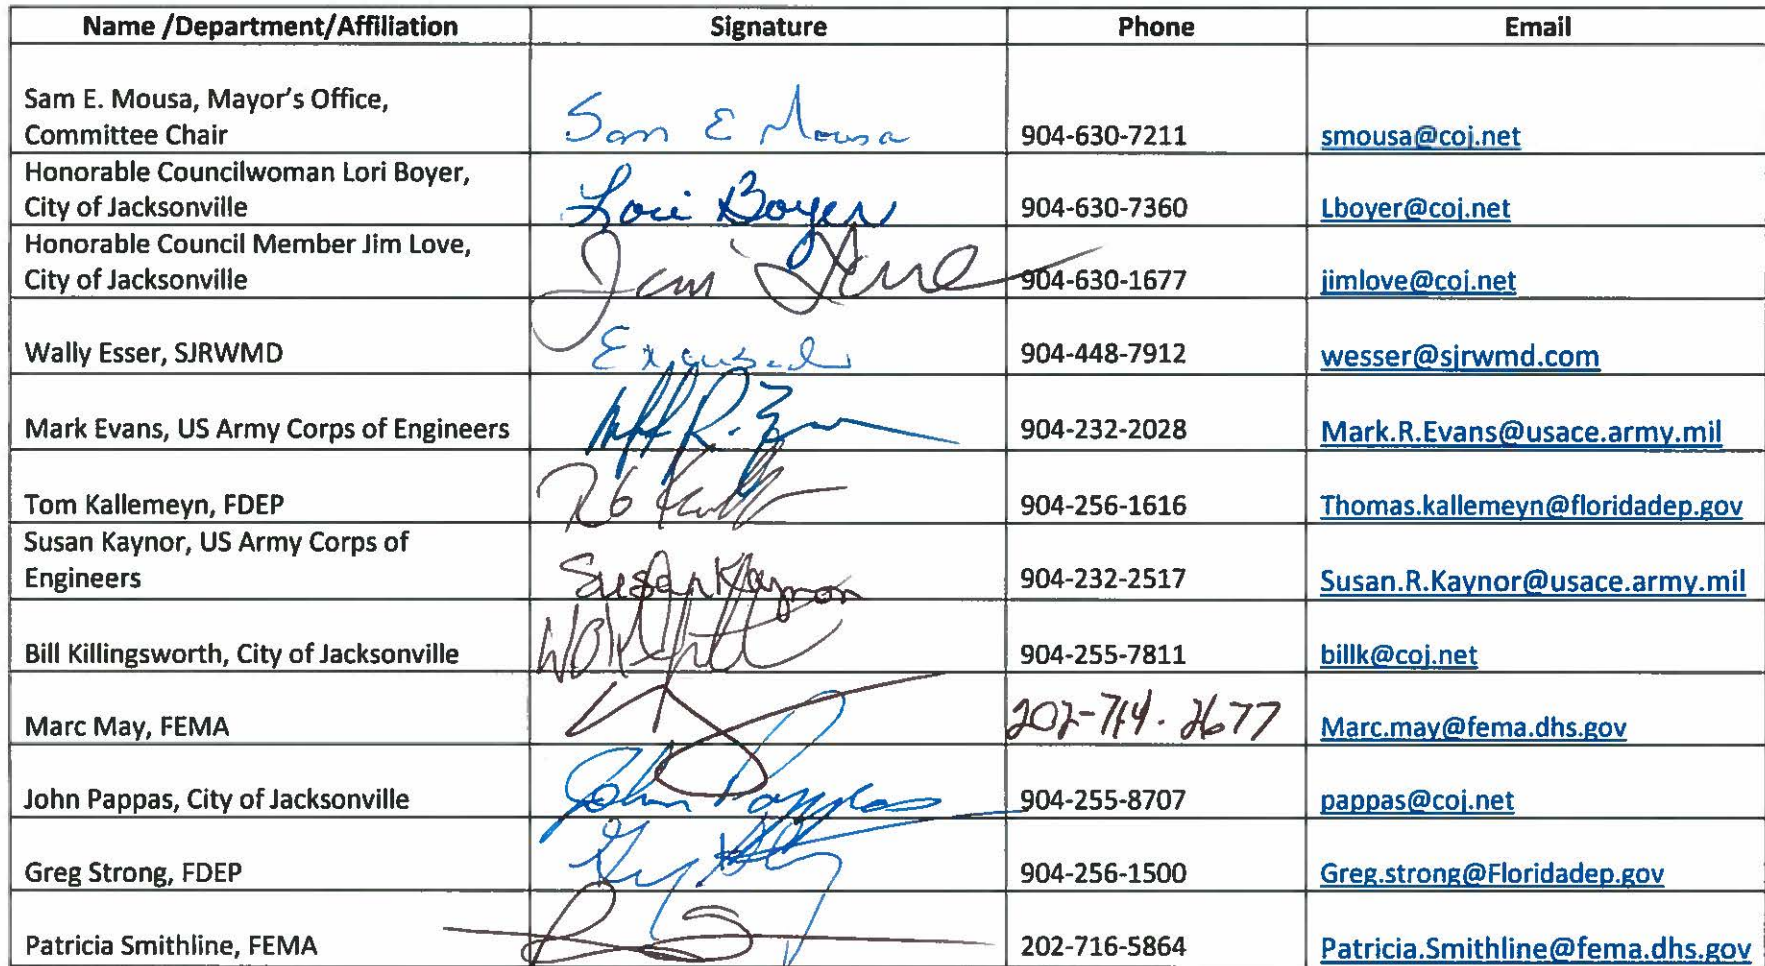 Name /Department/Affiliation Signature Phone Email
Sam E. Mousa, Mayor's Office,
Committee Chair Sam E Mousa 904-630-7211 smousa@coj.net
Honorable Councilwoman Lori Boyer,
City of Jacksonville Lori Boyer 904-630-7360 Lboyer@coj.net
Honorable Council Member Jim Love,
City of Jacksonville Jim Love 904-630-1677 jimlove@coj.net
Wally Esser, SJRWMD Excused 904-448-7912 wesser@sjrwmd.com
Mark Evans, US Army Corps of Engineers 904-232-2028 Mark.R.Evans@usace.army.mil
Tom Kallemeyn, FDEP 904-256-1616 Thomas.kallemeyn@floridadep.gov
Susan Kaynor, US Army Corps of
Engineers Susan Kaynor 904-232-2517 Susan.R.Kaynor@usace.army.mil
Bill Killingsworth, City of Jacksonville 904-255-7811 billk@coj.net
Marc May, FEMA Marc.may@fema.dhs.gov
John Pappas, City of Jacksonville John Pappas 904-255-8707 pappas@coj.net
Greg Strong, FDEP 904-256-1500 Greg.strong@Floridadep.gov
Patricia Smithline, FEMA 202-716-5864 Patricia.Smithline@fema.dhs.gov